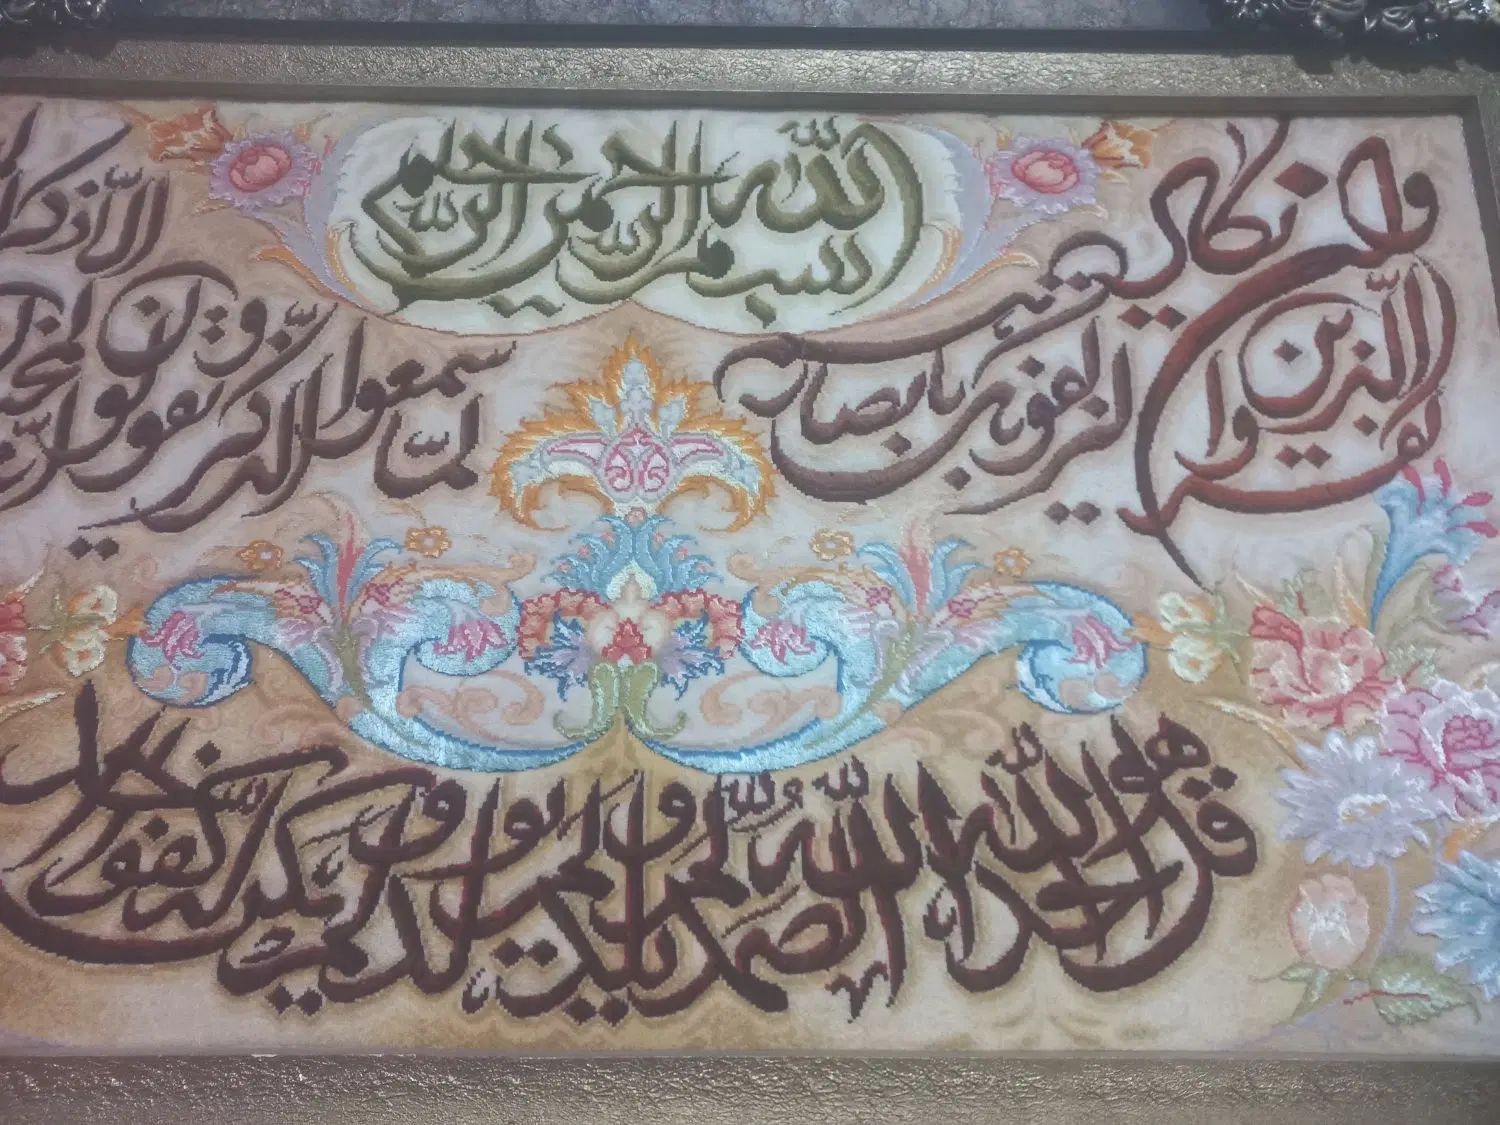 بسم الله الرحمن الرحیم
وان یکاد الذین کفروا لیزلقونک بابصارهم لما سمعوا الذکر ویقولون
الا ذکر
قل هو الله احد الله الصمد لم یلد ولم یولد ولم یکن له کفوا احد